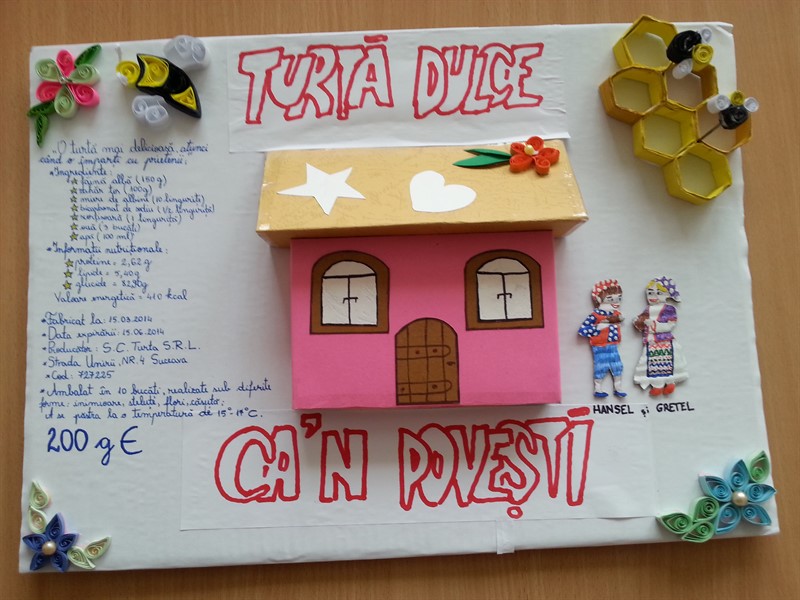 TURTĂ DULCE
"O turtă mai delicioasă, atunci
când o împarte cu prietenii;
• Ingrediente:
făină albă (150g)
zahăr tos (100g)
miere de albine (10 lingurițe)
bicarbonat de sodiu (1/2 linguriță)
scorțișoară (1 linguriță)
ouă (3 bucăți)
apă (100 ml)
• Informații nutriționale:
proteine = 2,62g
lipide = 5,40g
glucide = 82,30g
Valoare energetică = 410 kcal
• Fabricat la: 15.03.2014
• Data expirării: 15.06.2014
• Producător: S.C. Turta S.R.L.
• Strada Unirii, NR.4 Suceava
• Cod: 727225
• Ambalat în 10 bucăți, realizate sub diferite
forme: inimioare, steluțe, flori, căsuțe;
A se păstra la o temperatură de 15°-19°C.
200 g E
HANSEL și GRETEL
CA'N POVEȘTI